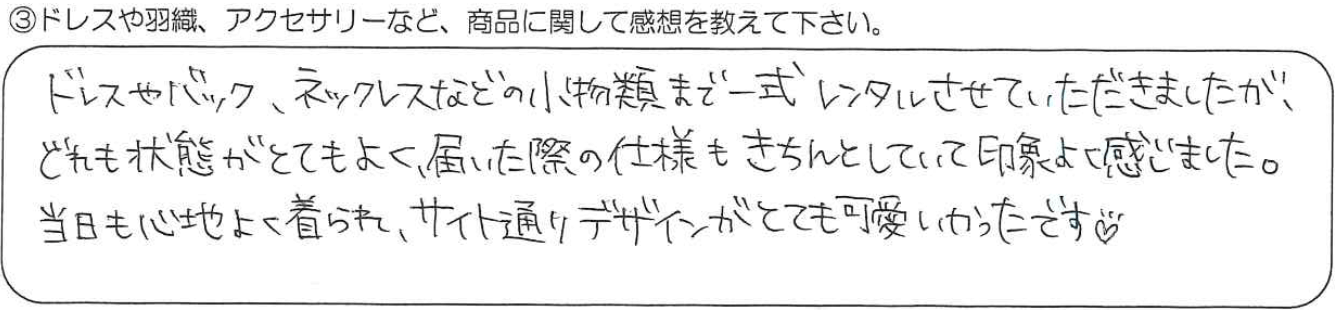 ③ドレスや羽織、アクセサリーなど、商品に関して感想を教えて下さい。
ドレスやバック、ネックレスなどの小物類まで一式レンタルさせていただきましたが、
どれも状態がとてもよく、届いた際の仕様もきちんとしていて印象よく感じました。
当日も心地よく着られ、サイト通りデザインがとても可愛いかったです♡